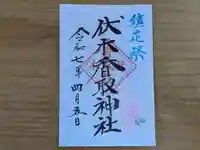 鎮花祭
伏木香取神社
令和七年四月五日